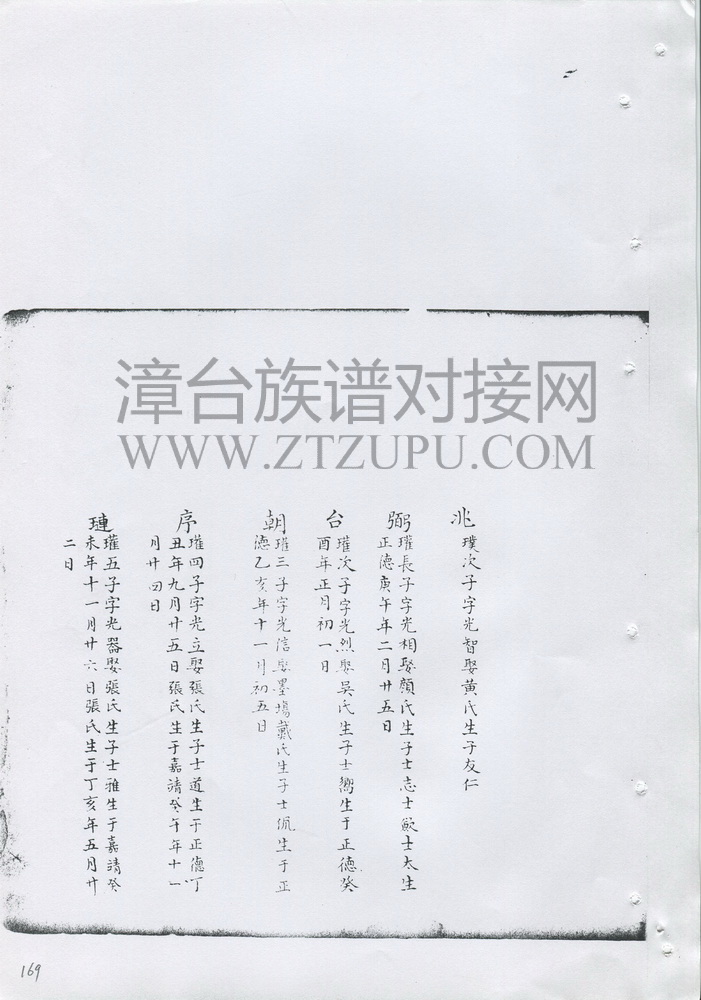 漳台族谱对接网
WWW.ZTZUPU.COM
兆 璞次子字光智娶黄氏生子友仁
弼 瓘長子字光相娶顏氏生子士志士歛士太生
正德庚午年二月廿五日
台 瓘次子字光烈娶吴氏生子士嚮生于正德癸
酉年正月初一日
朝 瓘三子字光信娶墨塲戴氏生子士侃生于正
德乙亥年十一月初五日
序 瓘四子字光立娶張氏生子士道生于正德丁
丑年九月廿五日張氏生于嘉靖癸午年十一
月廿四日
璉 瓘五子字光器娶張氏生子士雅生于嘉靖癸
未年十一月廿六日張氏生于丁亥年五月廿
二日
169